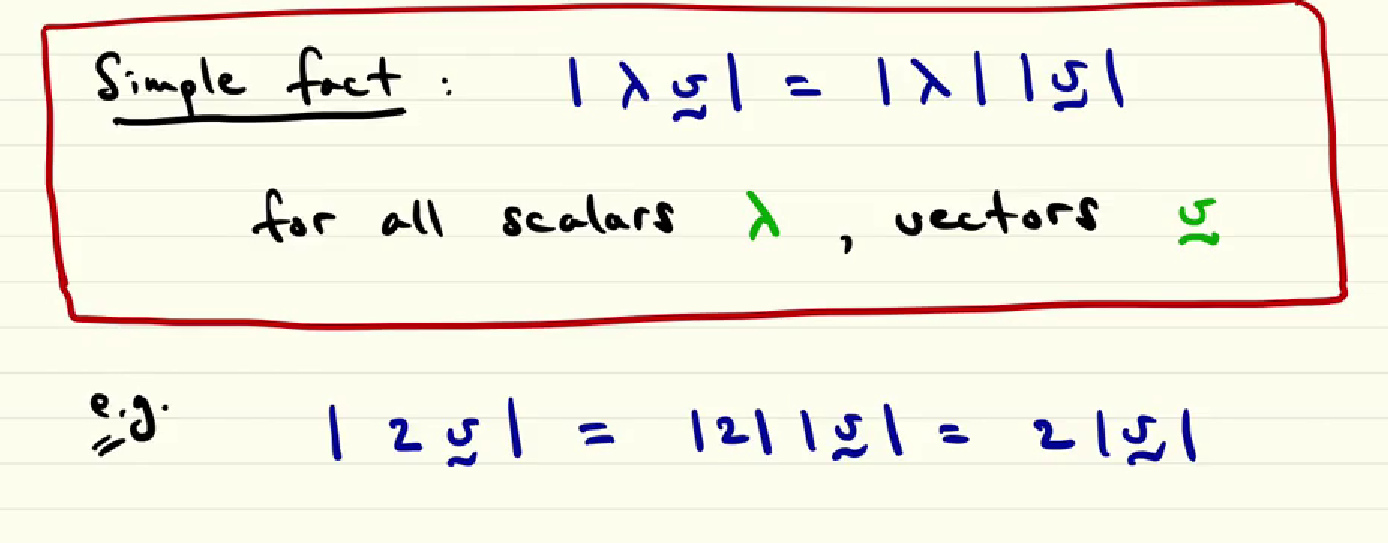 Simple fact : |λ v̰| = |λ| |v̰|
for all scalars λ , vectors v̰
e.g. |2 v̰| = |2| |v̰| = 2|v̰|